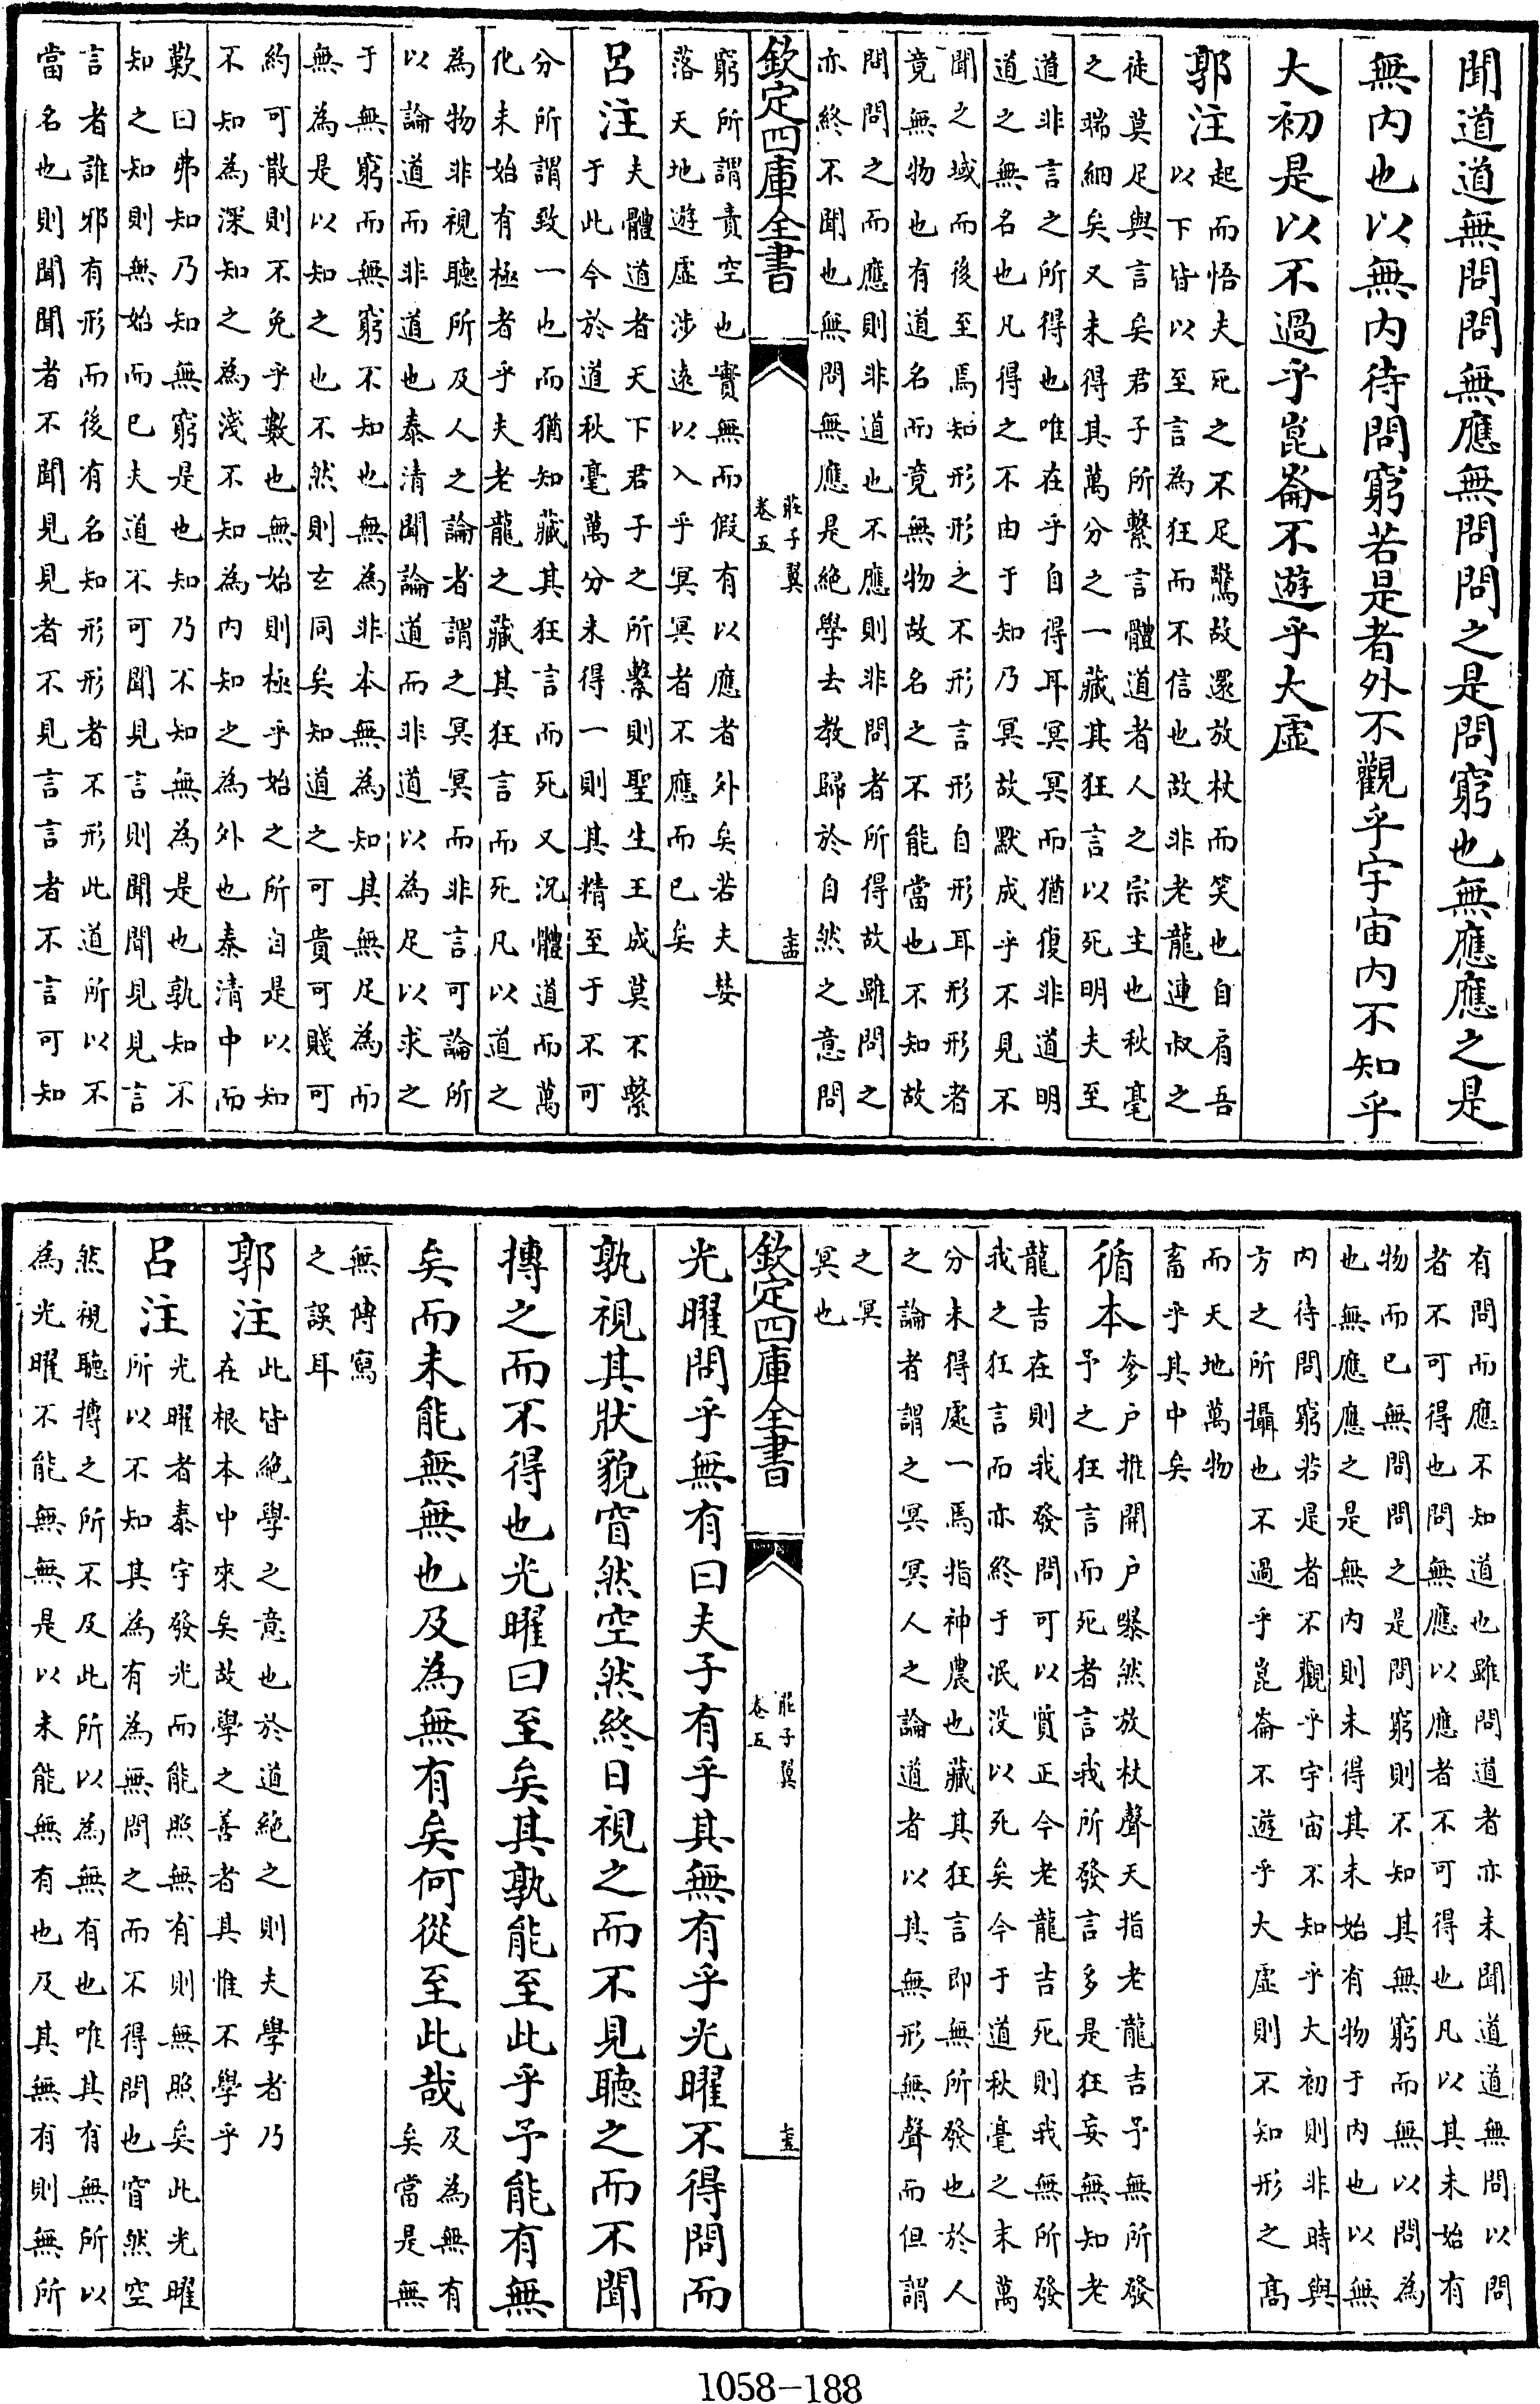 聞道道無問問無應無問問之是問窮也無應應之是
無内也以無内待問窮若是者外不觀乎宇宙内不知乎
大初是以不過乎崑崙不遊乎大虛
郭注
起而悟夫死之不足驚故還放杖而笑也自肩吾
以下皆以至言為狂而不信也故非老龍連叔之
徒莫足與言矣君子所繫言體道者人之宗主也秋毫
之端細矣又未得其萬分之一藏其狂言以死明夫至
道非言之所得也唯在乎自得耳冥冥而猶復非道明
道之無名也凡得之不由于知乃冥故默成乎不見不
聞之域而後至焉知形形之不形言形自形耳形形者
竟無物也有道名而竟無物故名之不能當也不知故
問問之而應則非道也不應則非問者所得故雖問之
亦終不聞也無問無應是絶學去教歸於自然之意問
欽定四庫全書
莊子翼
卷五
窮所謂責空也實無而假有以應者外矣若夫婪
落天地遊虛涉遠以入乎冥冥者不應而已矣
吕注
夫體道者天下君子之所繫則聖生王成莫不繫
于此今於道秋毫萬分未得一則其精至于不可
分所謂致一也而猶知藏其狂言而死又況體道而萬
化未始有極者乎夫老龍之藏其狂言而死凡以道之
為物非視聽所及人之論者謂之冥冥而非言可論所
以論道而非道也泰清聞論道而非道以為足以求之
于無窮而無窮不知也無為非本無為知其無足為而
無為是以知之也不然則玄同矣知道之可貴可賤可
約可散則不免乎數也無始則極乎始之所自是以知
不知為深知之為淺不知為内知之為外也泰清中而
歎曰弗知乃知無窮是也知乃不知無為是也孰知不
知之知則無始而已夫道不可聞見言則聞聞見見言
言者誰邪有形而後有名知形形者不形此道所以不
當名也則聞聞者不聞見見者不見言言者不言可知
有問而應不知道也雖問道者亦未聞道道無問以問
者不可得也問無應以應者不可得也凡以其未始有
物而已無問問之是問窮則不知其無窮而無以問為
也無應應之是無内則未得其未始有物于内也以無
内待問窮若是者不觀乎宇宙不知乎大初則非時與
方之所攝也不過乎崑崙不遊乎大虛則不知形之髙
而天地萬物
畜乎其中矣
循本
奓户推開户㬥然放杖聲天指老龍吉予無所發
予之狂言而死者言我所發言多是狂妄無知老
龍吉在則我發問可以質正今老龍吉死則我無所發
我之狂言而亦終于泯没以死矣今于道秋毫之末萬
分未得處一焉指神農也藏其狂言即無所發也於人
之論者謂之冥冥人之論道者以其無形無聲而但謂
之冥
冥也
欽定四庫全書
莊子翼
卷五
光曜問乎無有曰夫子有乎其無有乎光曜不得問而
孰視其狀貌窅然空然終日視之而不見聽之而不聞
搏之而不得也光曜曰至矣其孰能至此乎予能有無
矣而未能無無也及為無有矣何從至此哉
及為無有
矣當是無
無傳寫
之誤耳
郭注
此皆絶學之意也於道絶之則夫學者乃
在根本中來矣故學之善者其惟不學乎
吕注
光曜者泰宇發光而能照無有則無照矣此光曜
所以不知其為有為無問之而不得問也窅然空
然視聽搏之所不及此所以為無有也唯其有無所以
為光曜不能無無是以未能無有也及其無有則無所
1058-188